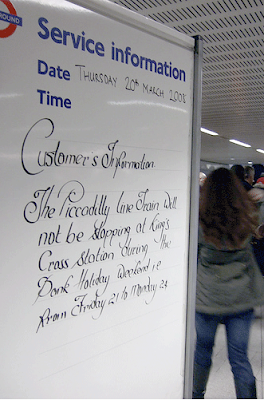 ROUND
Service information
Date THURSDAY 20th MARCH 2008
Time
Customer's Information
The Piccadilly line Train Will
not be stopping at King's
Cross station during the
Bank Holiday Weekend i.e
From Friday 21 to Monday 24